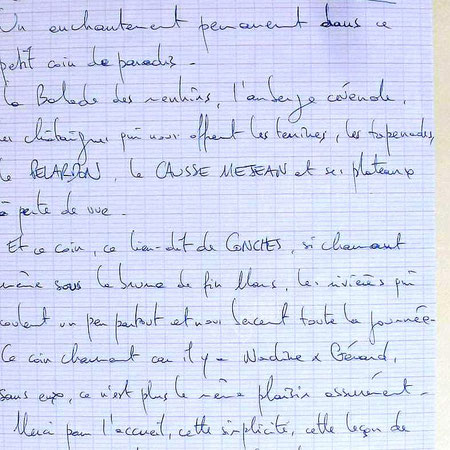 Un enchantement permanent dans ce
petit coin de paradis -
la Balade des menhirs, l'auberge cévenole,
les châtaignes qui nous offrent les terrines, les tapenades,
le PELARDON, le CAUSSE MEJEAN et ses plateaux
à perte de vue -
Et ce coin, ce lieu-dit de CONCHES, si charmant
même sous la brume de fin Mars, les rivières qui
coulent un peu partout et nous bercent toute la journée -
Ce coin charmant car il y a Nadine & Gérard,
sans eux, ce n'est plus le même plaisir assurément -
Merci pour l'accueil, cette simplicité, cette leçon de